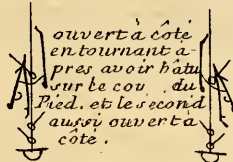 ouvert à côté
en tournant a-
pres avoir bâtu
sur le cou du
Pied. et le second
aussi ouvert à
côté.